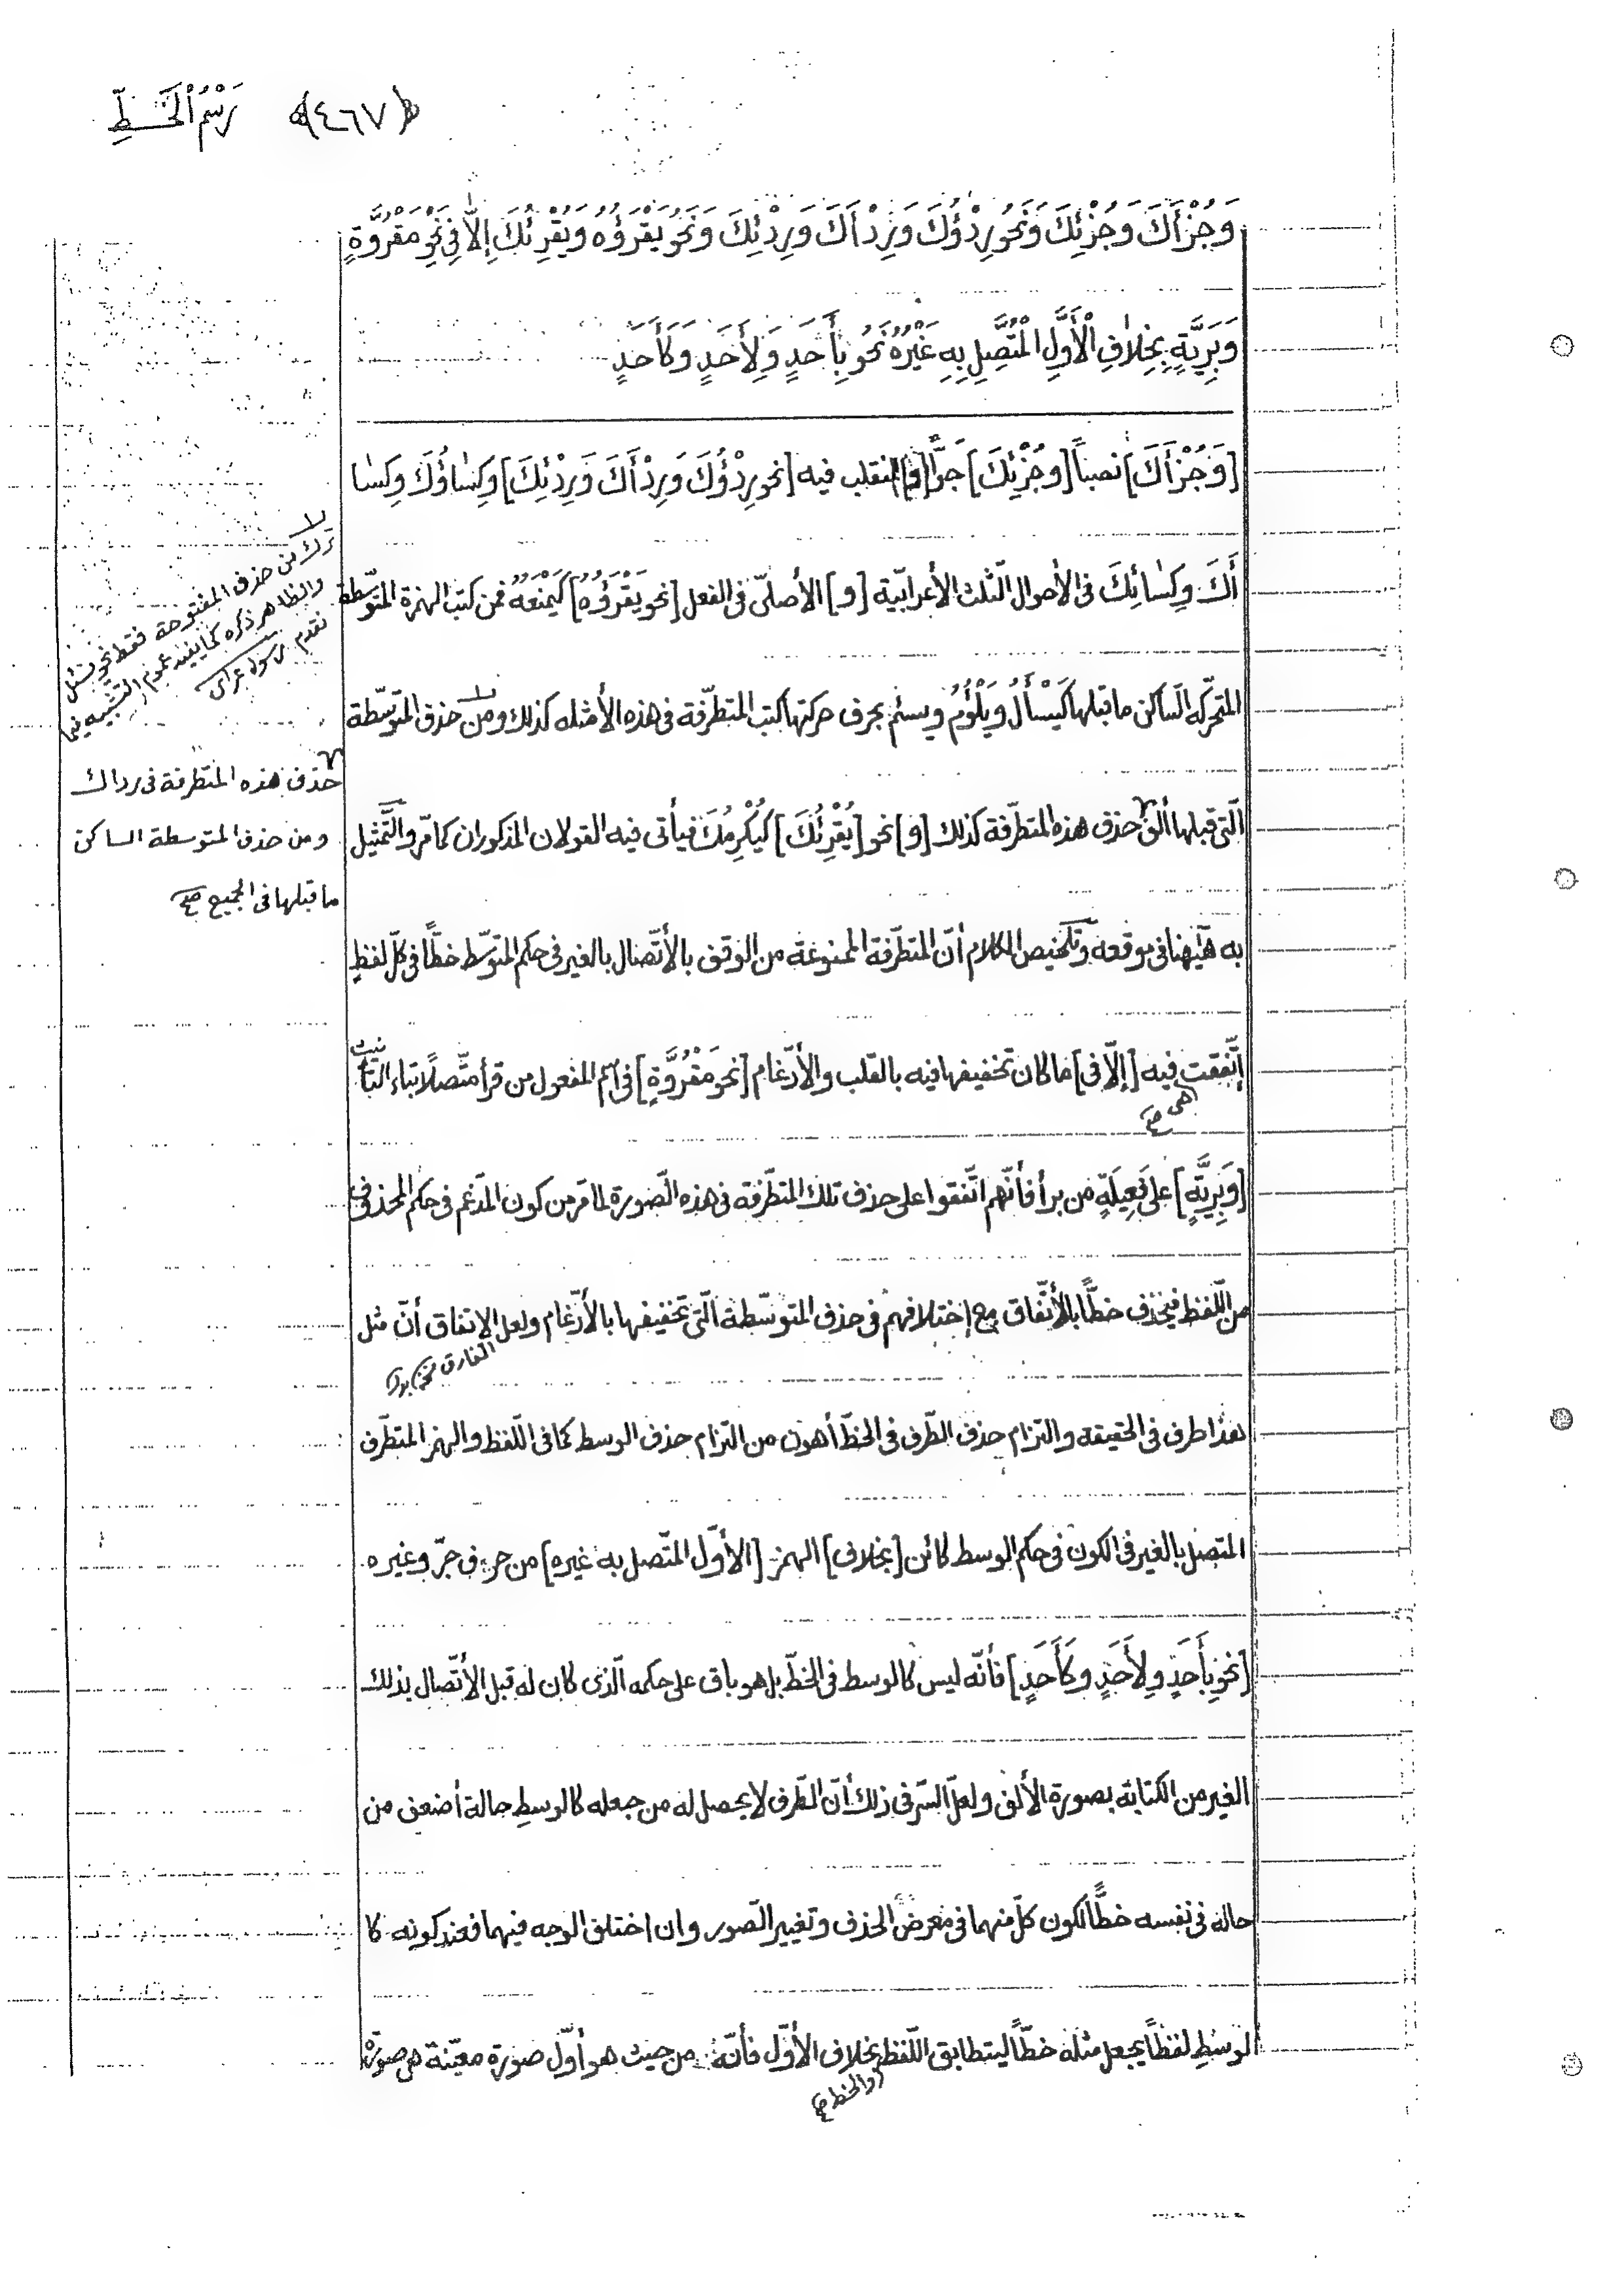 رَسْمُ الْخَطِّ ﴿٤٦٧﴾
وَجُزْأَكَ وَجُزْئِكَ وَنَحْوُ رِدْؤُكَ وَرِدْأَكَ وَرِدْئِكَ وَنَحْوُ يَقْرَؤُهُ وَيُقْرِئُكَ إِلاّٰ فِي نَحْوِ مَقْرُوَّةٍ
وَبَرِيَّةٍ بِخِلاٰفِ الْأَوَّلِ الْمُتَّصِلِ بِهِ غَيْرُهُ نَحْوُ بِأَحَدٍ وَلِأَحَدٍ وَكَأَحَدٍ
[وَجُزْأَكَ] نصباً [وجُزْئِكَ] جرًّا [و] المنقلب فيه [نحو رِدْؤُكَ وَرِدْأَكَ وَرِدْئِكَ] وَكِسٰاؤُكَ وكِسٰا
أَكَ وكِسٰائِكَ فى الأحوال الثّلث الأعرابيّة [و] الأصلىّ فى الفعل [نحو يَقْرَؤُهُ] كَيَمْنَعُهُ فمن كتب الهمزة المتوّسطة
المتحرّكه السّاكن ما قبلها كَيَسْأَلُ ويَلْؤُمُ ويسئم بحرف حركتها كتب المتطرّفة فى هذه الأمثله كذلك ومن حذف المتوسّطة
الّتى قبلها ألف حذف هذه المتطرّفة كذلك [و] نحو [يُقْرِئُكَ] كَيُكْرِمُكَ فيأتى فيه القولان المذكوران كما مّر والتّمثيل
به هٰيهنا فى موقعه وتلخيص الكلام أنّ المتطرّفة الممنوعة من الوقف بالأتّصال بالغير فى حكم المتوسّط خطًّا فى كلّ لفظٍ
إتّفقت فيه [إلاّ فى] ما كان تخفيفها فيه بالقلب والأدّغام [نحو مَقْرُوَّةٍ] فى اسم المفعول من قرأ متّصلاً بتاء التأنيث
اهى صح
[وَبَرِيَّةٍ] على فَعِيلَةٍ من برأ فأنّهم اتّفقوا على حذف تلك المتطرّفة فى هذه الصّورة لما مّر من كون المدّغم فى حكم المحذوف
من اللّفظ فيحذف خطًّا بالأتّفاق مع إختلافهم فى حذف المتوسّطة الّتى تخفيفها بالأدّغام ولعل الاتفاق أنّ مثل
الفارق
هذا طرف فى الحقيقه والتزام حذف الطّرف فى الخطّ أهون من التزام حذف الوسط كما فى اللّفظ والهمز المتطرّف
المتصل بالغير فى الكون فى حكم الوسط كائن [بخلاف] الهمز [الأوّل المتّصل به غيره] من حرف جرّ وغيره
[نحو بِأَحَدٍ ولِأَحَدٍ وكَأَحَدٍ] فأنّه ليس كالوسط فى الخطّ بل هو باق على حكمه الّذى كان له قبل الأتّصال بذلك
الغير من الكتابة بصورة الألف ولعلّ السّر فى ذلك أنّ الطّرف لا يحصل له من جعله كالوسطِ حالة أضعف من
حاله فى نفسه خطًّا لكون كلّ منهما فى معرض الحذف وتغيير الصّور وان اختلف الوجه فيهما فعند كونه كا
لوسْطِ لفظاً يجعل مثله خطًّا ليتطابق اللّفظ بخلاف الأوّل فأنّه من حيث هو أوّل صورة معيّنة هى صورة
(والخط صح)
ترك من حذف المفتوحة فقط نحو يسئل
والظاهر ذكره كما يفيد عموم التشبيه فيما
تقدم
حذف هذه المتطرفة فى رداك
ومن حذف المتوسطة الساكن
ما قبلها فى الجميع صح